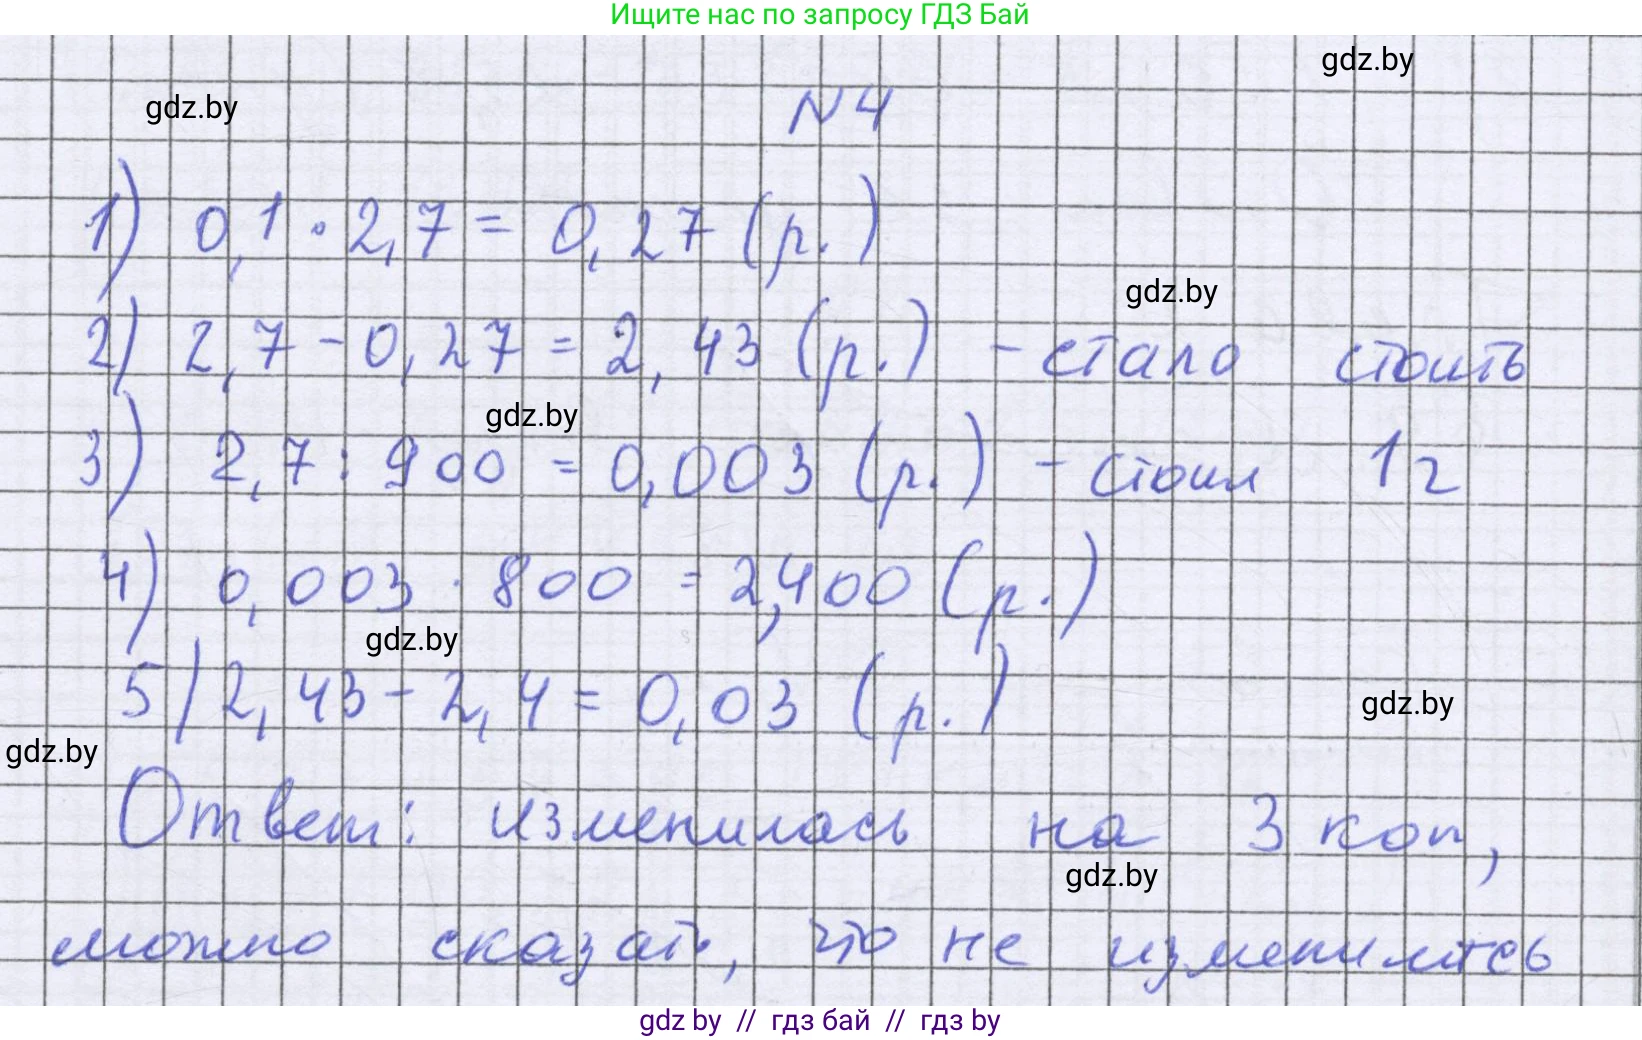 Ищите нас по запросу ГДЗ Бай
gdz.by
gdz.by
N4
1) 0,1 · 2,7 = 0,27 (р.)
gdz.by
2) 2,7 - 0,27 = 2,43 (р.) - стало стоить
gdz.by
3) 2,7 : 900 = 0,003 (р.) - стоил 1г
4) 0,003 · 800 = 2,400 (р.)
gdz.by
5) 2,43 - 2,4 = 0,03 (р.)
gdz.by
gdz.by
Ответ: изменилась на 3 коп,
gdz.by
можно сказать, что не изменилась
gdz by // гдз бай // гдз by